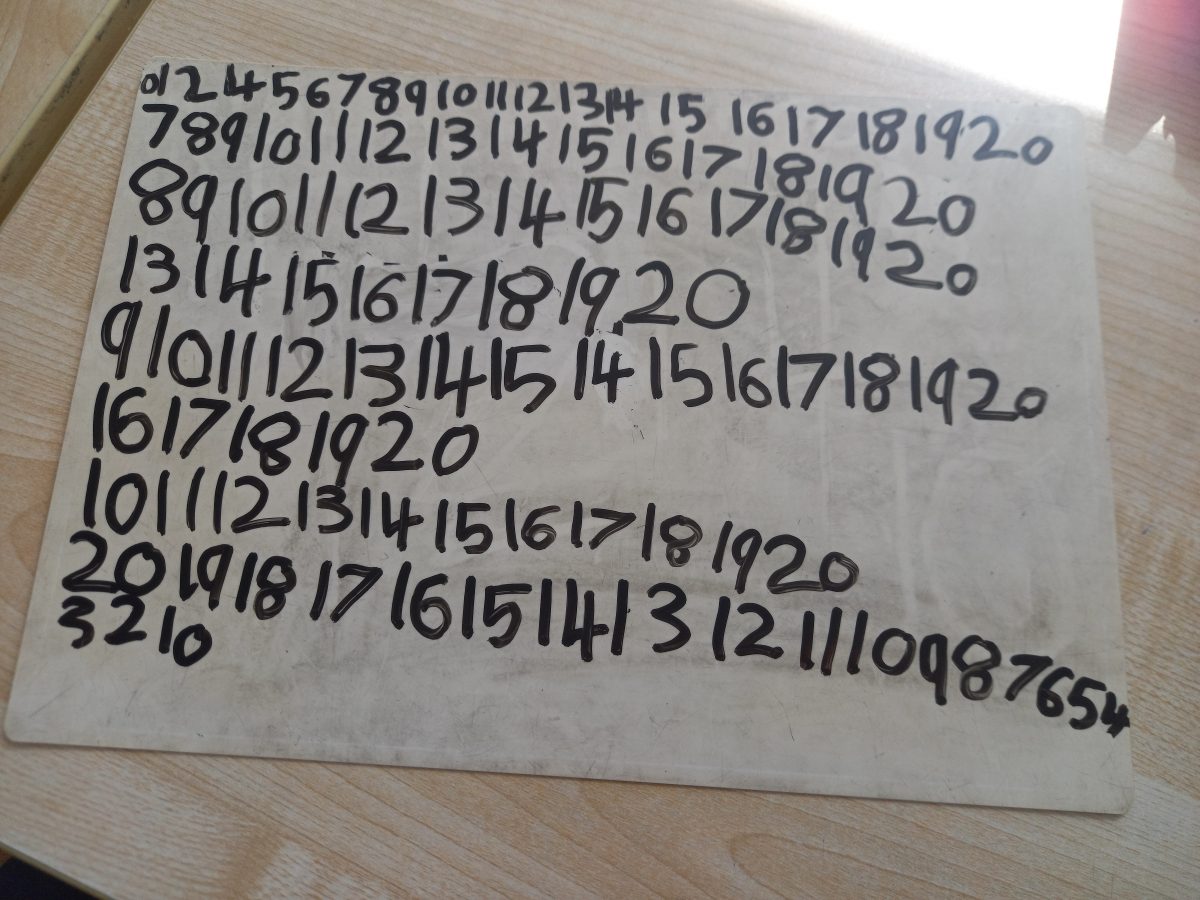 0 1 2 14 5 6 7 8 9 10 11 12 13 14 15 16 17 18 19 20
7 8 9 10 11 12 13 14 15 16 17 18 19 20
8 9 10 11 12 13 14 15 16 17 18 19 20
13 14 15 16 17 18 19 20
9 10 11 12 13 14 15 14 15 16 17 18 19 20
16 17 18 19 20
10 11 12 13 14 15 16 17 18 19 20
20 19 18 17 16 15 14 13 12 11 10 9 8 7 6 5 4
3 2 1 0